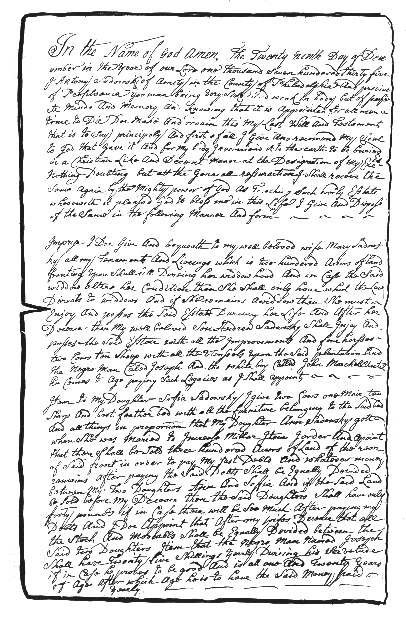 In the Name of God Amen, The Twenty ninth Day of Dece
umber in the Year of our Lord one Thousand Seven hundred thirty five
I Antony Sadowski of Amity in the County of Philadelphia
of Pensilvania Yeoman being very Sick and weak in body but of perfect
Mind And Memory And knowing that it is Appointed for all men
once to Die Doe Make And ordain this My Last Will And Testament
that is to Say principally And first of all I Give And recomend My Soul
to God that Gave it And for My body I recomend it to the earth to be buried
in a Christian Like And Decent Maner at the Designation of my
Nothing Doubting but att the General resurrection I Shall receive the
Same Again by the Mighty power of God As Touching Such worldly Estate
wherewith it pleased God to bless me in this Life I Give And Dispose
of the Same in the following Manner And form
Imprs. I Doe Give And bequeath to my well beloved wife Mary Sadows
ky all my Tenements And Liveings which is two hundred Acres of Land
fronting upon During her widowhood And in Case the Said
widdow alters her Condition then She Shall only have what the Law
Directs to widdows And if She remains widdow then She must
Enjoy And posses the Said Estate During her Life And After her
Decease then My well beloved Son Andrew Sadowsky Shall Enjoy And
posses the Said Estate with all the Improvements And four horses
two Cows ten Sheep with all the upon the Said plantation And
the Negro Man Called Joseph And the white boy Called John
he Comes to Age paying Such Legacies as I Shall appoint
Item To My Daughter Sofia Sadowsky I give two Cows one Mair ten
Sheep And best feather bed with all the furniture belonging to the Said bed
And all things in proportion that My Daughter Ann Sadowsky gott
when She was Maried to Item I order And Apoint
that there Shall be Sold three hundred Acres of Land of the
of Said front in order to pay My Just Debts And whatever money
remains After paying the Said Debts Shall be Equally Devided
between My Two Daughters Ann and Sofia And if the Said Land
be Sold before My Decease then the Said Daughters Shall have only
forty pounds if in Case there will be Soe Much After paying my
Debts And I Doe Appoint that After my wifes Decease that all
the Stock And Movables Shall be Equally Devided between the
Said two Daughters Item that the Negro Man Named Joseph
Shall have Twenty five Shillings Yearly During his Servitude
if in Case he proves to be good And is all one And twenty Years
of Age After which Age he is to have the Said Money paid
yearly